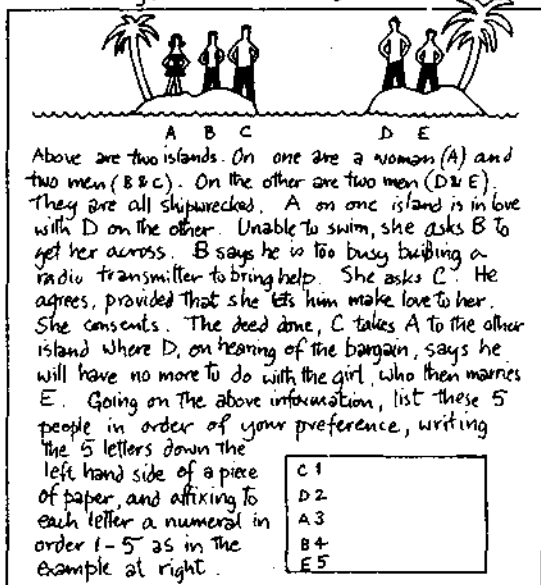 A B C D E
Above are two islands. On one are a woman (A) and
two men (B & C). On the other are two men (D & E).
They are all shipwrecked. A on one island is in love
with D on the other. Unable to swim, she asks B to
get her across. B says he is too busy building a
radio transmitter to bring help. She asks C. He
agrees, provided that she lets him make love to her.
She consents. The deed done, C takes A to the other
island where D, on hearing of the bargain, says he
will have no more to do with the girl, who then marries
E. Going on the above information, list these 5
people in order of your preference, writing
the 5 letters down the
left hand side of a piece
of paper, and affixing to
each letter a numeral in
order 1-5 as in the
example at right.
C 1
D 2
A 3
B 4
E 5